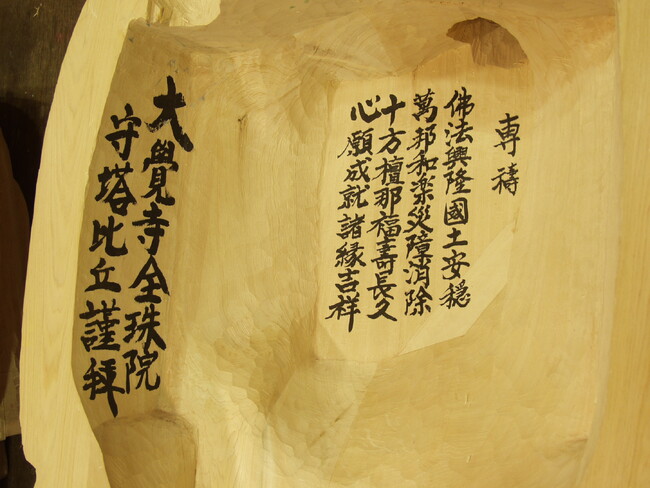 専祷
佛法興隆國土安穏
萬邦和楽災障消除
十方檀那福壽長久
心願成就諸緣吉祥
大覺寺全珠院
守塔比丘謹拜